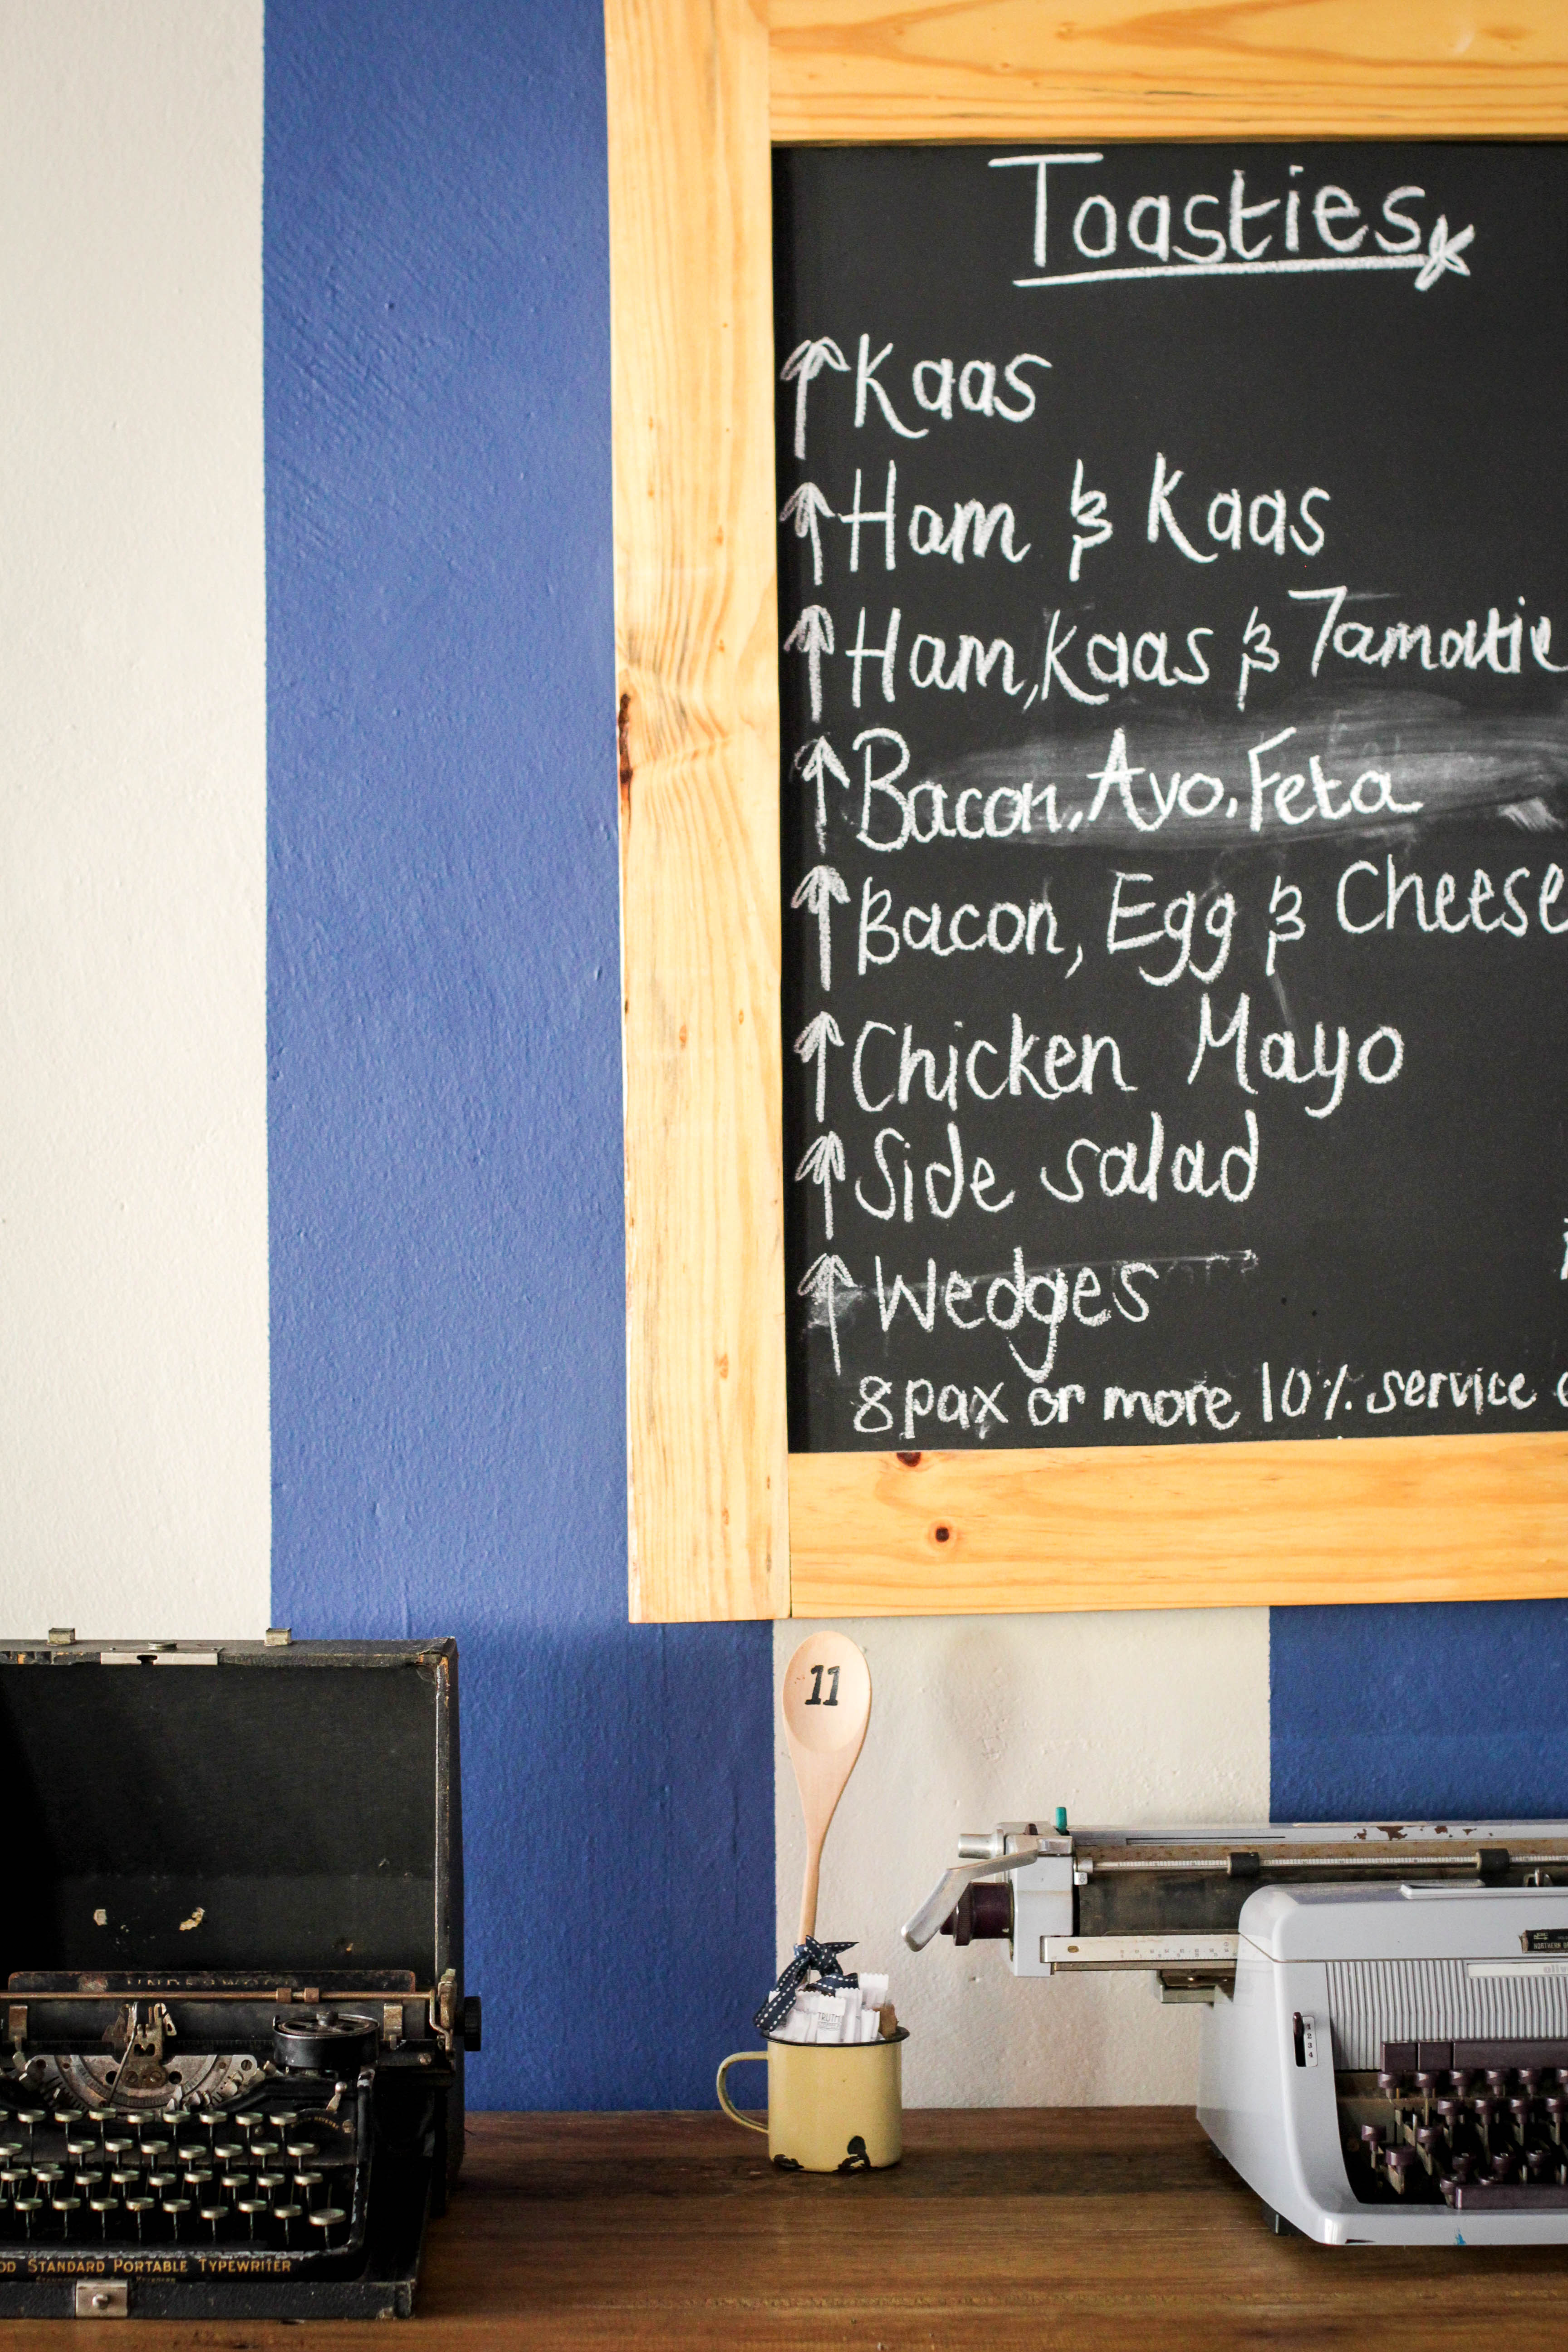 Toasties
Kaas
Ham & Kaas
Ham, Kaas & Tamatie
Bacon, Avo, Feta
Bacon, Egg & Cheese
Chicken Mayo
Side salad
Wedges
8 pax or more 10% service
11
UNDERWOOD
STANDARD PORTABLE TYPEWRITER
1
2
3
4